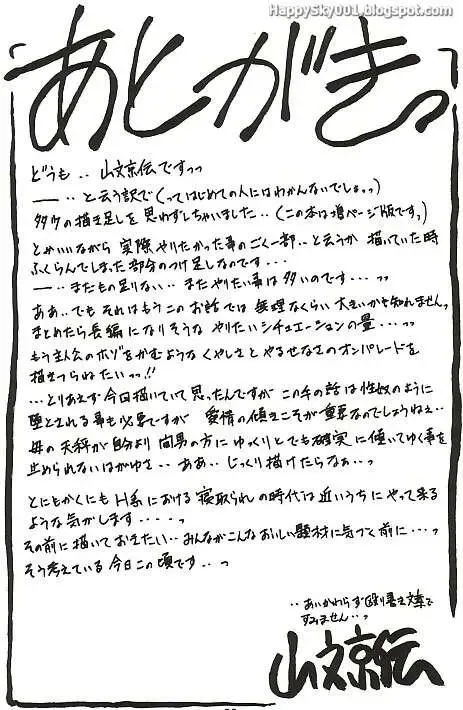 HappySky001.blogspot.com
あとがきっ
どうも‥山文京伝ですっっ
―‥と云う訳で(ってはじめての人にはわかんないでしょっっ)
多少の描き足しを思わずしちゃいました‥(この本は増ページ版ですっ)
とかいいながら 実際やりたかった事のごく一部‥と云うか 描いていた時
ふくらんでしまった部分のつけ足しなのです・・・
―‥まだもの足りない‥ まだやりたい事は多いのです・・・っっ
ああ‥でも それはもうこのお話では 無理なくらい 大きいかも知れませんっ
まとめたら長編になりそうな やりたいシチュエーションの量・・・・っっ
もう主人公のホゾをかむような くやしさと やるせなさのオンパレードを
描きつらねたいっっ!!
…とりあえず今回描いていて思ったんですが この手の話は性奴のように
堕とされる事も必要ですが 愛情の傾きこそが重要なのでしょうねぇ‥
母の天秤が自分より 間男の方に ゆっくりとでも確実に傾いてゆく事を
止められないはがゆさ‥ ああ‥ じっくり描けたらなぁ‥っ
とにもかくにも H系における 寝取られの時代は近いうちに やって来る
ような気がします・・・・っ
その前に描いておきたい‥みんながこんなおいしい題材に気づく前に・・・っ
そう考えている今日この頃です‥っ
‥あいかわらず殴り書き文章で
すみません‥っ
山文京伝